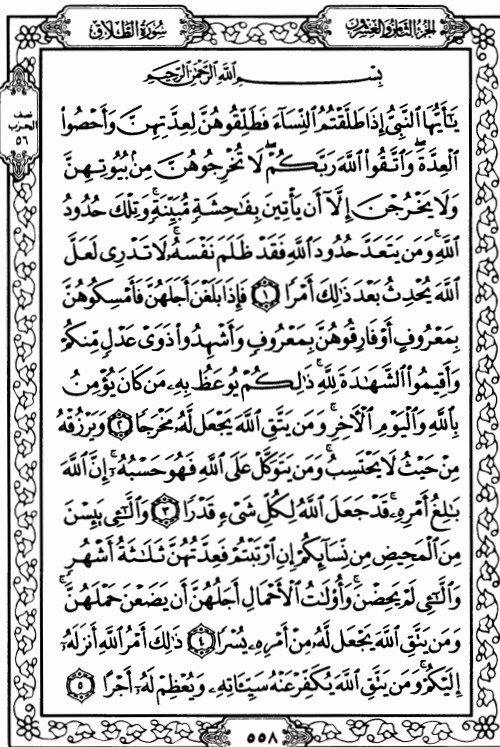 سُورَةُ الطَّلَاقِ
الجُزْءُ الثَّامِنُ وَالعِشْرُونَ
نصف
الحزب
٥٦
بِسْمِ اللَّهِ الرَّحْمَٰنِ الرَّحِيمِ
يَٰٓأَيُّهَا ٱلنَّبِيُّ إِذَا طَلَّقْتُمُ ٱلنِّسَآءَ فَطَلِّقُوهُنَّ لِعِدَّتِهِنَّ وَأَحْصُوا۟
ٱلْعِدَّةَ ۖ وَٱتَّقُوا۟ ٱللَّهَ رَبَّكُمْ ۖ لَا تُخْرِجُوهُنَّ مِنۢ بُيُوتِهِنَّ
وَلَا يَخْرُجْنَ إِلَّآ أَن يَأْتِينَ بِفَٰحِشَةٍ مُّبَيِّنَةٍ ۚ وَتِلْكَ حُدُودُ
ٱللَّهِ ۚ وَمَن يَتَعَدَّ حُدُودَ ٱللَّهِ فَقَدْ ظَلَمَ نَفْسَهُۥ ۚ لَا تَدْرِى لَعَلَّ
ٱللَّهَ يُحْدِثُ بَعْدَ ذَٰلِكَ أَمْرًا ١ فَإِذَا بَلَغْنَ أَجَلَهُنَّ فَأَمْسِكُوهُنَّ
بِمَعْرُوفٍ أَوْ فَارِقُوهُنَّ بِمَعْرُوفٍ وَأَشْهِدُوا۟ ذَوَىْ عَدْلٍ مِّنكُمْ
وَأَقِيمُوا۟ ٱلشَّهَٰدَةَ لِلَّهِ ۚ ذَٰلِكُمْ يُوعَظُ بِهِۦ مَن كَانَ يُؤْمِنُ
بِٱللَّهِ وَٱلْيَوْمِ ٱلْءَاخِرِ ۚ وَمَن يَتَّقِ ٱللَّهَ يَجْعَل لَّهُۥ مَخْرَجًا ٢ وَيَرْزُقْهُ
مِنْ حَيْثُ لَا يَحْتَسِبُ ۚ وَمَن يَتَوَكَّلْ عَلَى ٱللَّهِ فَهُوَ حَسْبُهُۥٓ ۚ إِنَّ ٱللَّهَ
بَٰلِغُ أَمْرِهِۦ ۚ قَدْ جَعَلَ ٱللَّهُ لِكُلِّ شَىْءٍ قَدْرًا ٣ وَٱلَّٰٓـِٔى يَئِسْنَ
مِنَ ٱلْمَحِيضِ مِن نِّسَآئِكُمْ إِنِ ٱرْتَبْتُمْ فَعِدَّتُهُنَّ ثَلَٰثَةُ أَشْهُرٍ
وَٱلَّٰٓـِٔى لَمْ يَحِضْنَ ۚ وَأُو۟لَٰتُ ٱلْأَحْمَالِ أَجَلُهُنَّ أَن يَضَعْنَ حَمْلَهُنَّ ۚ
وَمَن يَتَّقِ ٱللَّهَ يَجْعَل لَّهُۥ مِنْ أَمْرِهِۦ يُسْرًا ٤ ذَٰلِكَ أَمْرُ ٱللَّهِ أَنزَلَهُۥٓ
إِلَيْكُمْ ۚ وَمَن يَتَّقِ ٱللَّهَ يُكَفِّرْ عَنْهُ سَيِّـَٔاتِهِۦ وَيُعْظِمْ لَهُۥٓ أَجْرًا ٥
٥٥٨